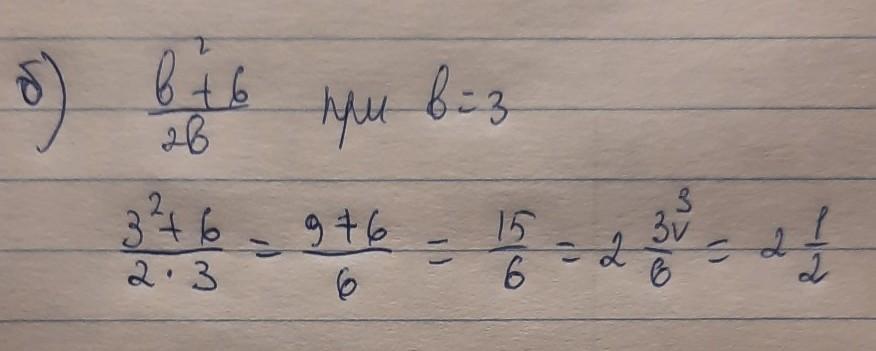 б) (b² + 6)/(2b) при b = 3
(3² + 6)/(2 · 3) = (9 + 6)/6 = 15/6 = 2 3\³/6 = 2 1/2